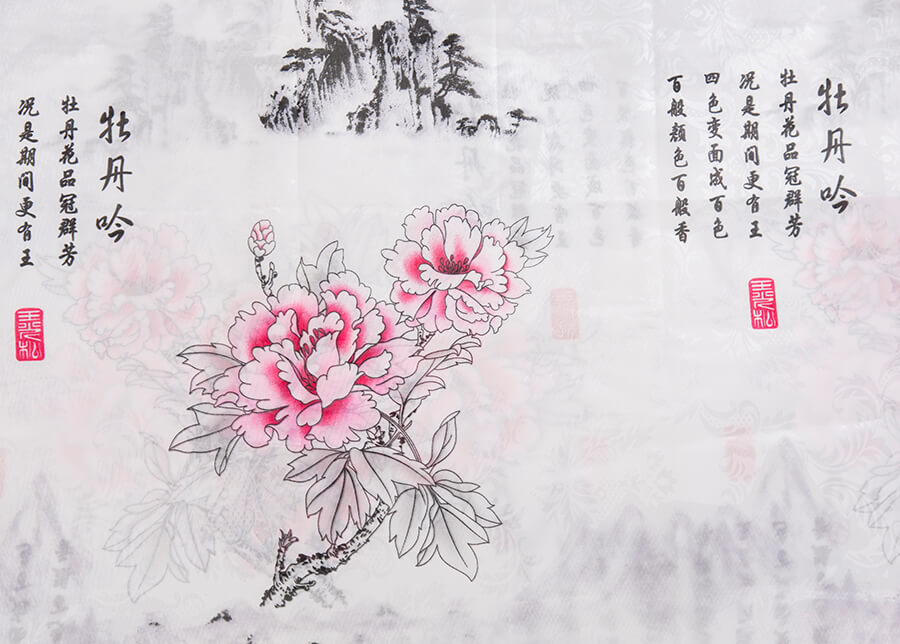 牡丹吟
牡丹花品冠群芳
况是期间更有王
四色变面成百色
百般颜色百般香
牡丹吟
牡丹花品冠群芳
况是期间更有王